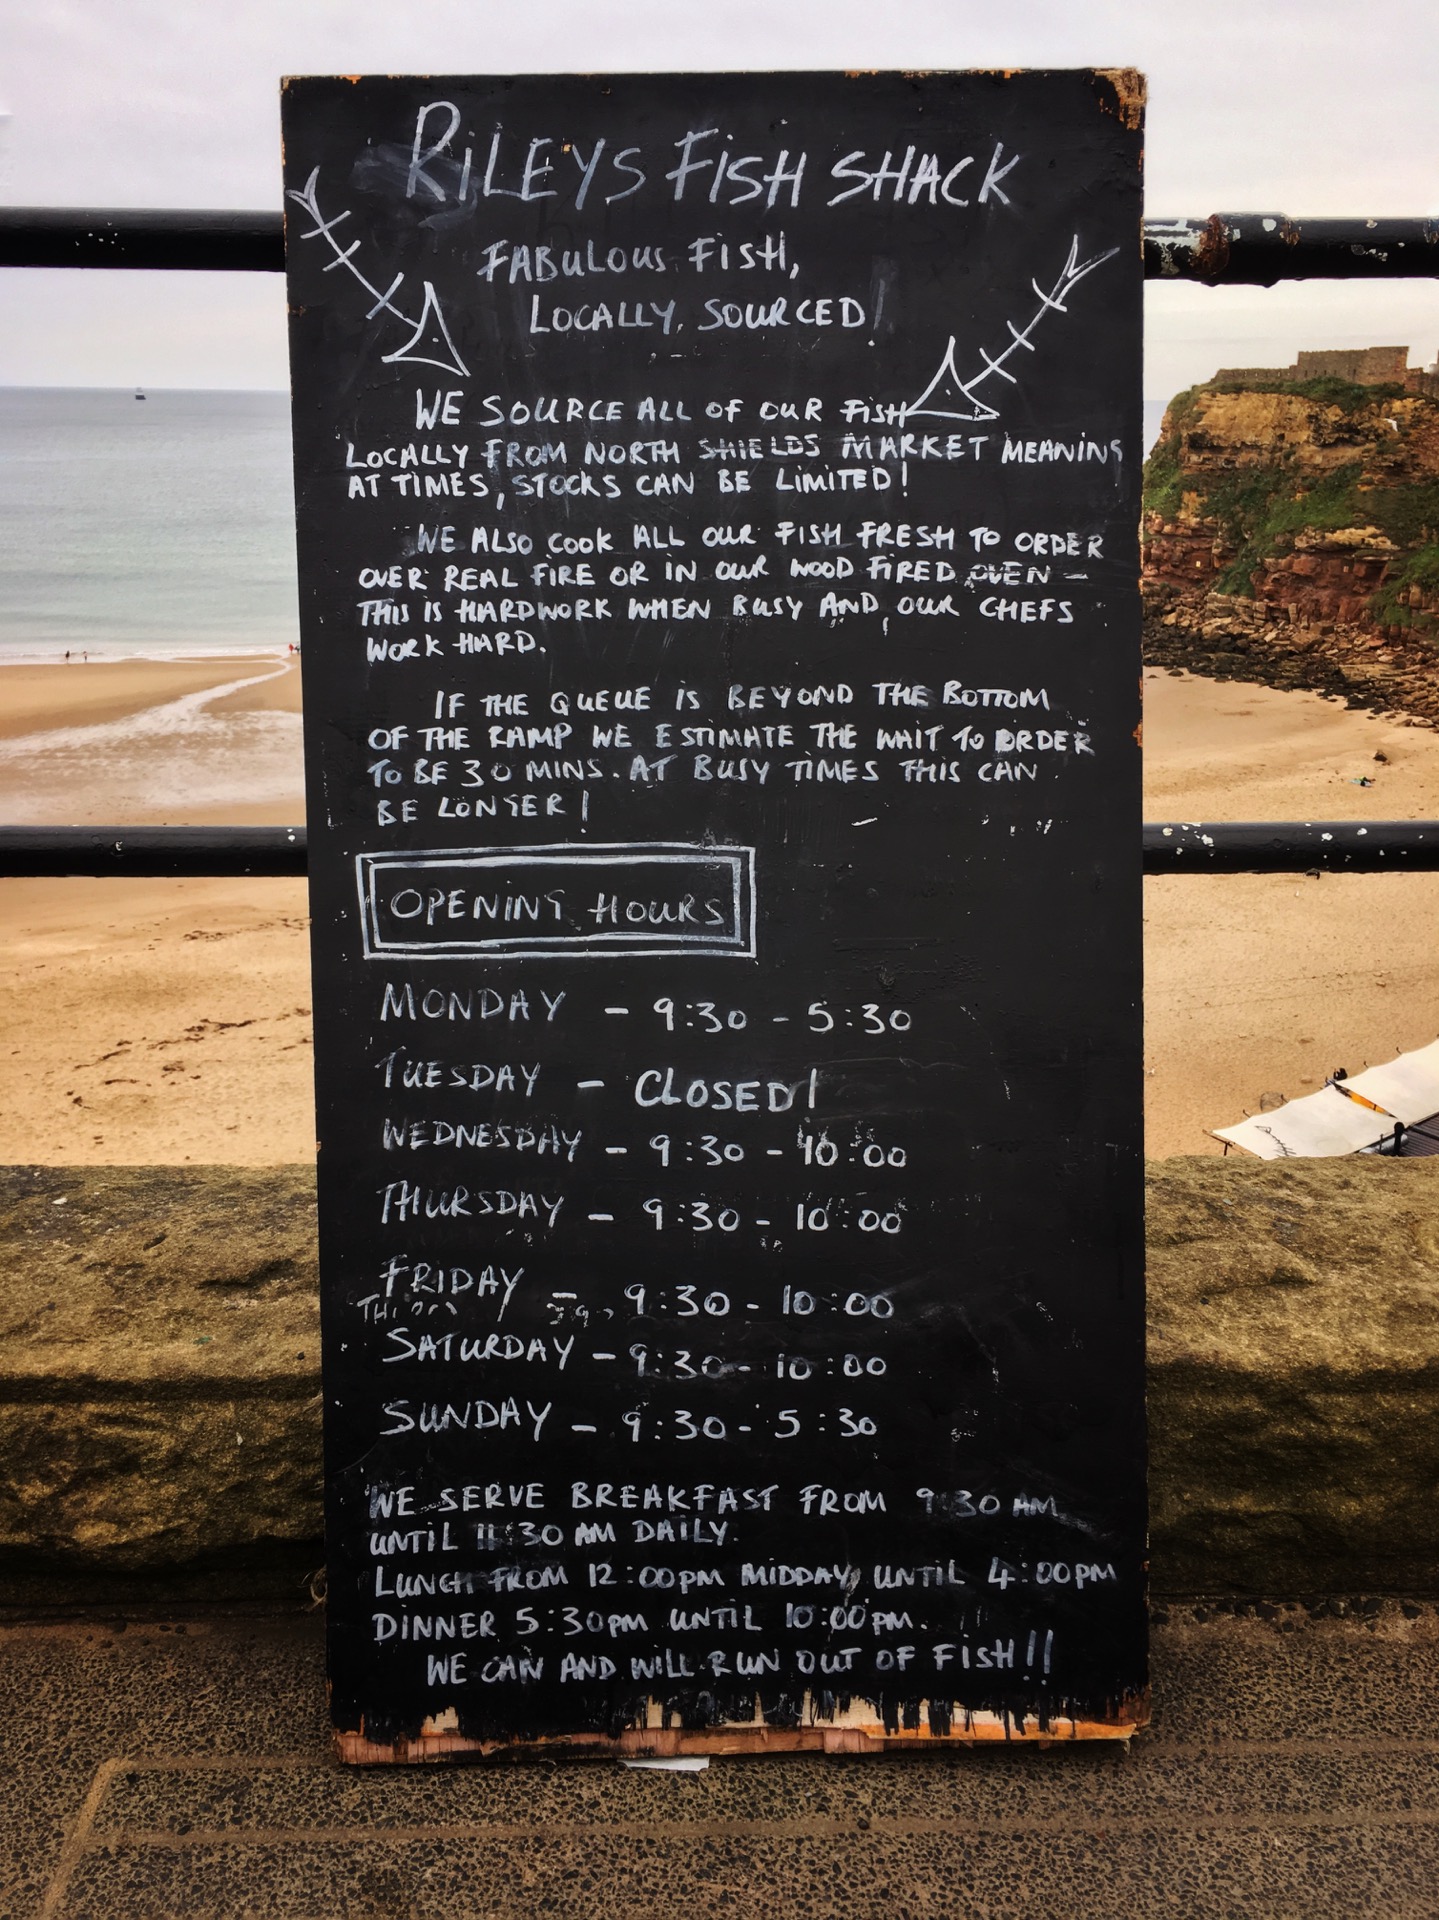 RILEYS FISH SHACK
FABULOUS FISH,
LOCALLY SOURCED!
WE SOURCE ALL OF OUR FISH
LOCALLY FROM NORTH SHIELDS MARKET MEANING
AT TIMES, STOCKS CAN BE LIMITED!
WE ALSO COOK ALL OUR FISH FRESH TO ORDER
OVER REAL FIRE OR IN OUR WOOD FIRED OVEN -
THIS IS HARDWORK WHEN BUSY AND OUR CHEFS
WORK HARD.
IF THE QUEUE IS BEYOND THE BOTTOM
OF THE RAMP WE ESTIMATE THE WAIT TO ORDER
TO BE 30 MINS. AT BUSY TIMES THIS CAN
BE LONGER!
OPENING HOURS
MONDAY - 9:30 - 5:30
TUESDAY - CLOSED!
WEDNESDAY - 9:30 - 10:00
THURSDAY - 9:30 - 10:00
FRIDAY - 9:30 - 10:00
SATURDAY - 9:30 - 10:00
SUNDAY - 9:30 - 5:30
WE SERVE BREAKFAST FROM 9:30 AM
UNTIL 11:30 AM DAILY.
LUNCH FROM 12:00PM MIDDAY UNTIL 4:00PM
DINNER 5:30PM UNTIL 10:00PM.
WE CAN AND WILL RUN OUT OF FISH!!